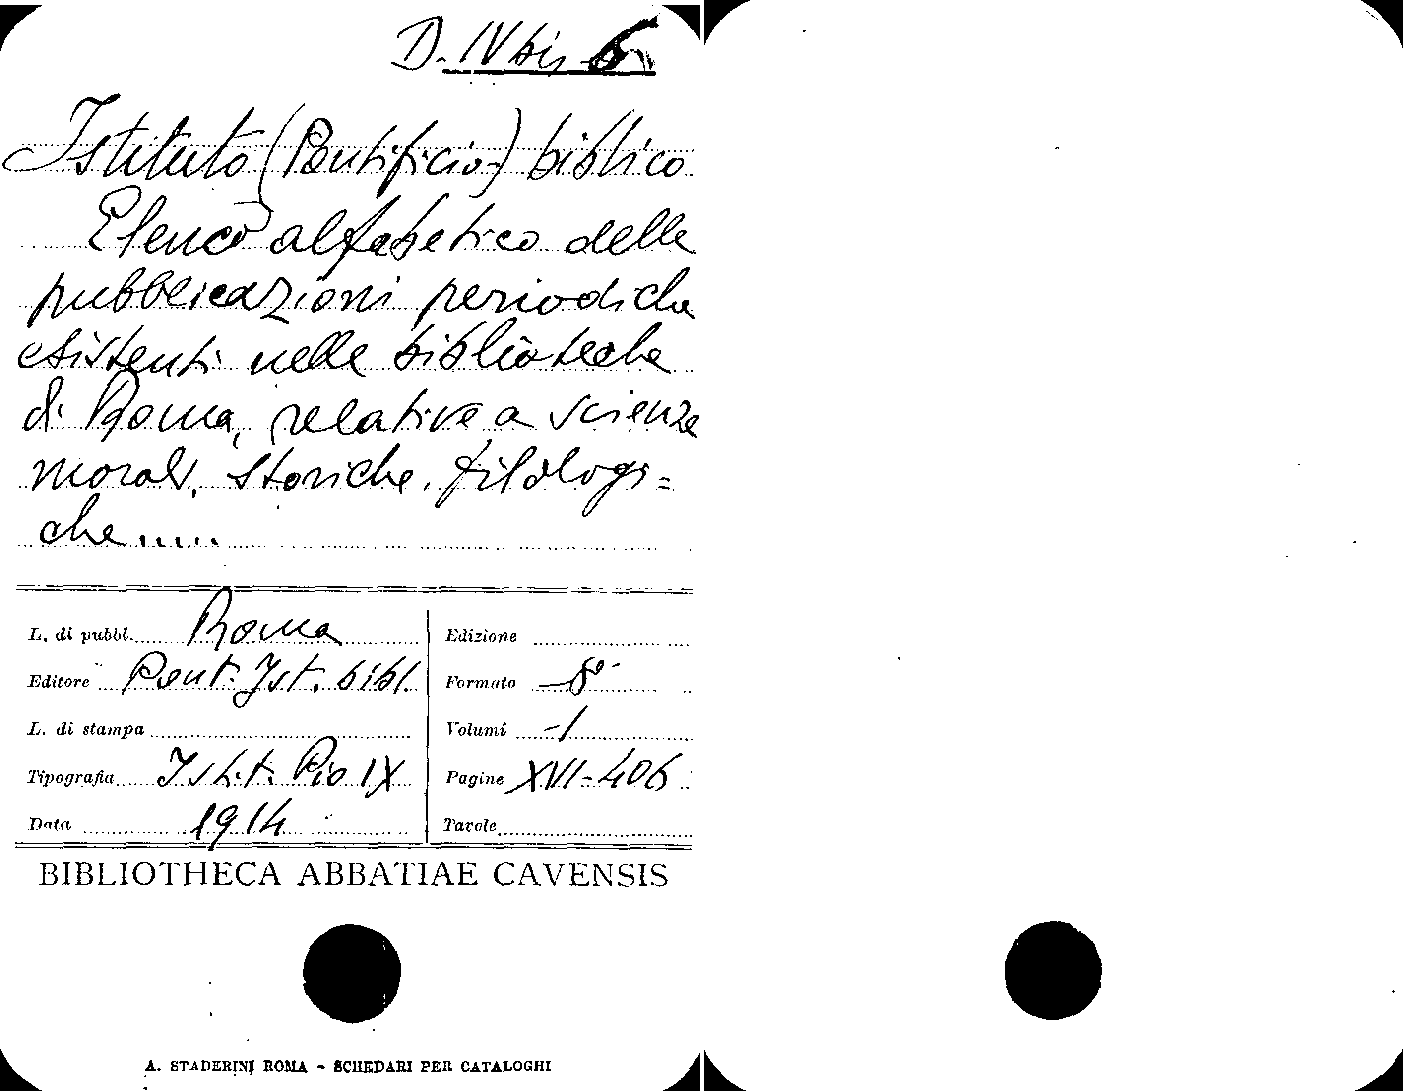 D. IV bis 6
Istituto (Pontificio) biblico
Elenco alfabetico delle
pubblicazioni periodiche
esistenti nelle biblioteche
di Roma, relative a scienze
morali, storiche, filologi=
che.....
L. di pubbl. Roma
Edizione
Editore Pont. Ist. bibl.
Formato 8°
L. di stampa
Volumi 1
Tipografia Istit. Pio IX
Pagine XVI-406
Data 1914
Tavole
BIBLIOTHECA ABBATIAE CAVENSIS
A. STADERINI ROMA - SCHEDARI PER CATALOGHI